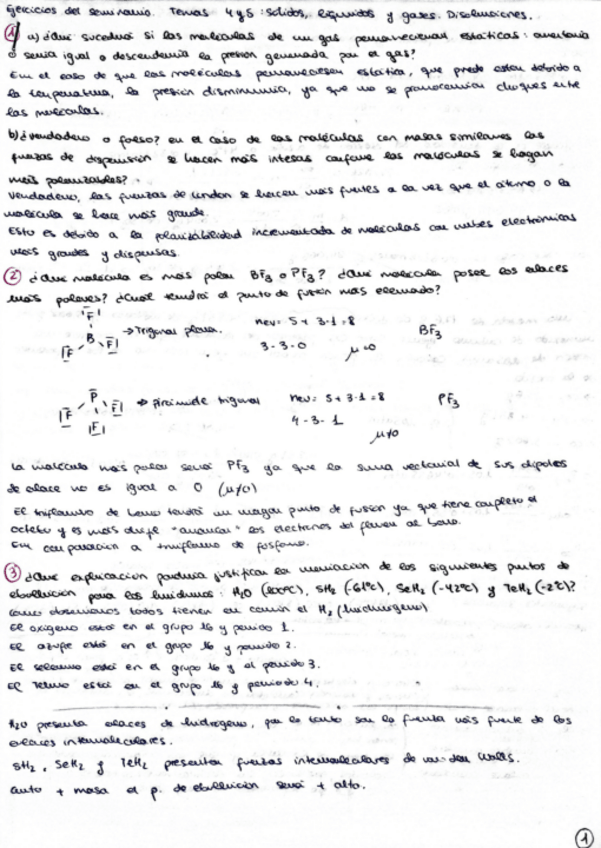 Ejercicios del seminario. Temas 4 y 5: sólidos, líquidos y gases. Disoluciones.
① a) ¿Qué sucedería si las moléculas de un gas permanecieran estáticas: aumentaría
o sería igual o descendería la presión generada por el gas?
En el caso de que las moléculas permaneciesen estática, que puede estar debido a
la temperatura, la presión disminuiría, ya que no se provocarían choques entre
las moléculas.
b) ¿Verdadero o falso? en el caso de las moléculas con masas similares las
fuerzas de dispersión se hacen más intesas conforme las moléculas se hagan
más polarizables?
Verdadero, las fuerzas de London se hacen más fuertes a la vez que el átomo o la
molécula se hace más grande.
Esto es debido a la polarizabilidad incrementada de moléculas con nubes electrónicas
más grandes y dispersas.
② ¿Qué molécula es más polar BF3 o PF3? ¿Qué molécula posee los enlaces
más polares? ¿Cuál tendrá el punto de fusión más elevado?
F
B → Trigonal plana. nev = 5 + 3·1 = 8 BF3
F F 3-3-0 μ=0
P → pirámide trigonal nev = 5 + 3·1 = 8 PF3
F F 4-3-1
F μ≠0
La molécula más polar será PF3 ya que la suma vectorial de sus dipolos
de enlace no es igual a 0 (μ≠0)
El trifluoruro de boro tendrá un mayor punto de fusión ya que tiene completo el
octeto y es más difícil "arrancar" los electrones del flúor al boro.
En comparación a trifluoruro de fósforo.
③ ¿Qué explicación podría justificar la variación de los siguientes puntos de
ebullición para los hidruros: H2O (100ºC), SH2 (-61ºC), SeH2 (-42ºC) y TeH2 (-2ºC)?
Como observamos todos tienen en común el H2 (hidrógeno)
El oxígeno está en el grupo 16 y periodo 1.
El azufre está en el grupo 16 y periodo 2.
El selenio está en el grupo 16 y al periodo 3.
El teluro está en el grupo 16 y periodo 4.
H2O presenta enlaces de hidrógeno, por lo tanto son la fuerza más fuerte de los
enlaces intermoleculares.
SH2, SeH2 y TeH2 presentan fuerzas intermoleculares de van der Walls.
Cuanto + masa el p. de ebullición será + alto.
①